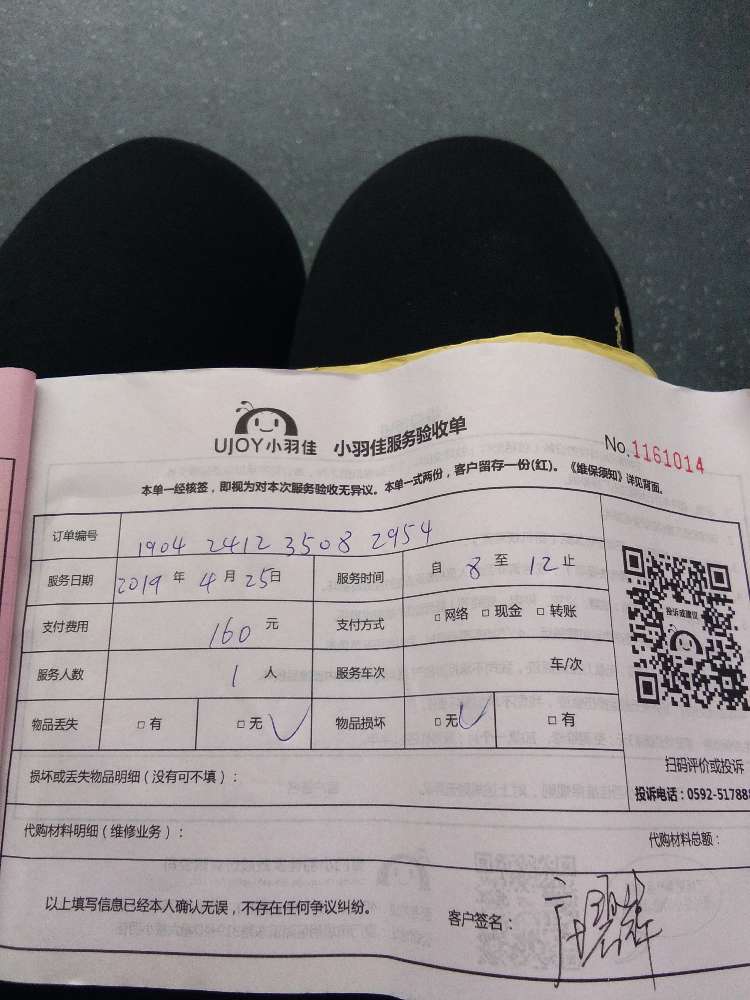 UJOY小羽佳 小羽佳服务验收单 No.1161014
本单一经核签，即视为对本次服务验收无异议。本单一式两份，客户留存一份(红)。《维保须知》详见背面。
订单编号 1904 2412 3508 2954
服务日期 2019 年 4 月 25 日 服务时间 自 8 至 12 止
支付费用 160 元 支付方式 □ 网络 □ 现金 □ 转账
投诉或建议
服务人数 1 人 服务车次 车/次
物品丢失 □ 有 □ 无 物品损坏 □ 无 □ 有
扫码评价或投诉
损坏或丢失物品明细（没有可不填）：
投诉电话：0592-517888
代购材料明细（维修业务）：
代购材料总额：
以上填写信息已经本人确认无误，不存在任何争议纠纷。 客户签名：